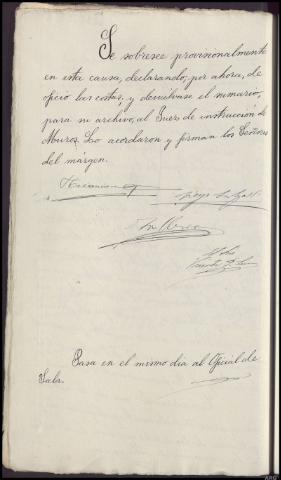 Se sobresee provisionalmente
en esta causa, declarando, por ahora, de
oficio las costas, y devuélvase el sumario,
para su archivo, al Juez de instrucción de
Muros. Lo acordaron y firman los Señores
del márgen.
Pasa en el mismo dia al Oficial de
Sala.